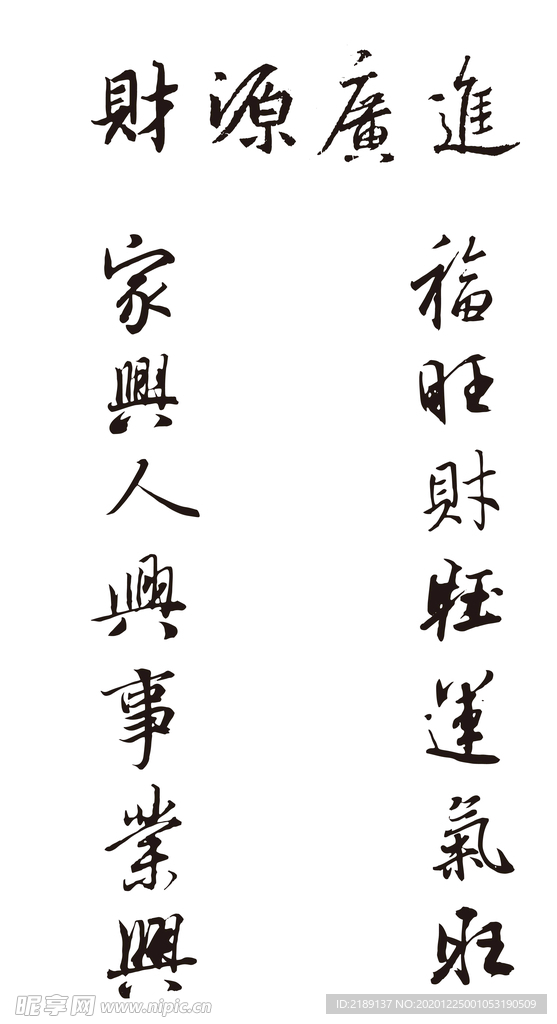 財源廣進
家興人興事業興
福旺財旺運氣旺
昵享网 www.nipic.cn
ID:2189137 NO:20201225001053190509